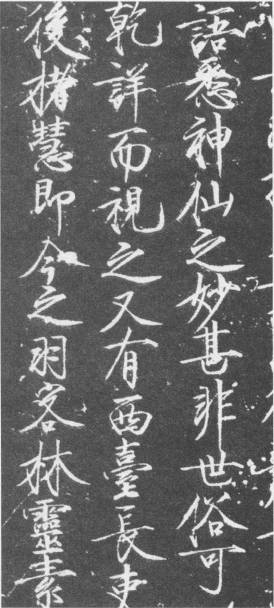 語悉神仙之妙甚非世俗可
乾詳而視之又有西臺長吏
後褚慧即今之羽客林靈素